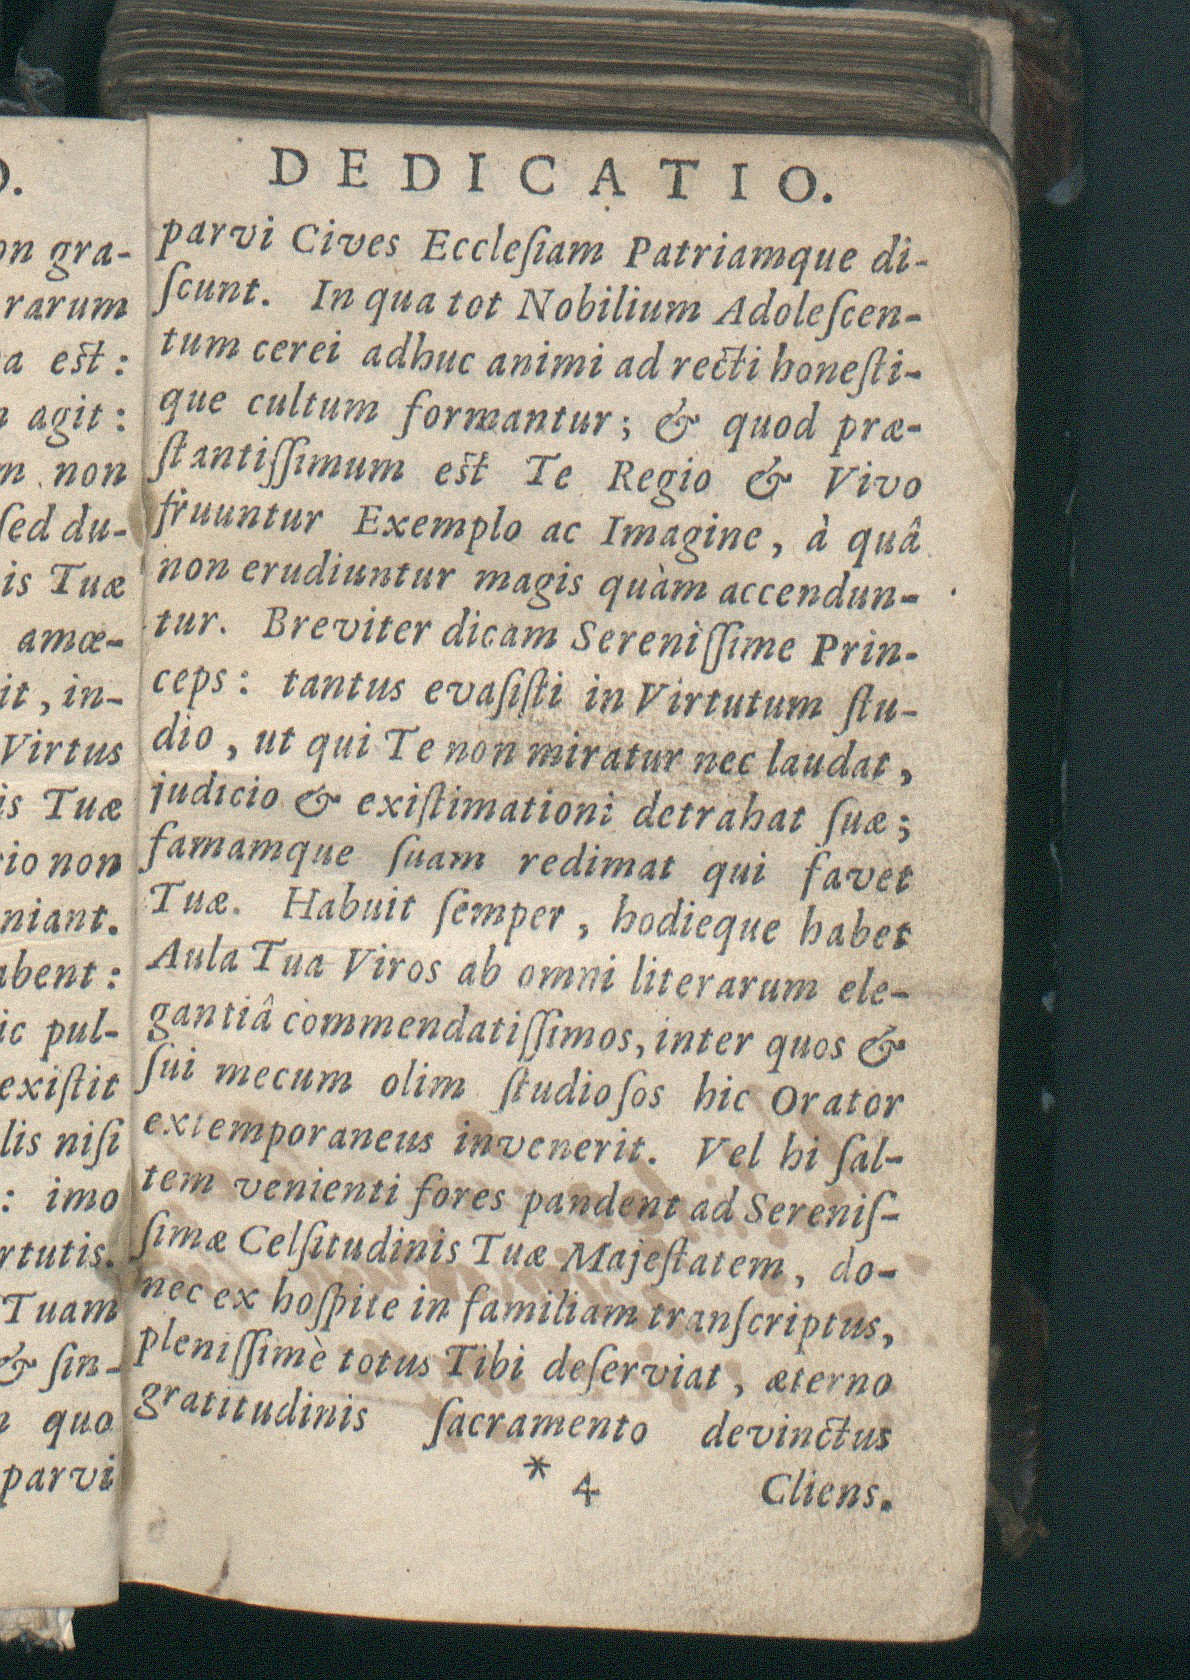 O.
on gra-
rarum
a est:
agit:
non
sed du-
is Tuæ
amœ-
it, in-
Virtus
is Tuæ
io non
niant.
abent:
ic pul-
existit
lis nisi
: imo
rtutis.
Tuam
& sin-
quo
parvi
DEDICATIO.
parvi Cives Ecclesiam Patriamque di-
scunt. In qua tot Nobilium Adolescen-
tum cerei adhuc animi ad recti honesti-
que cultum formantur; & quod præ-
stantissimum est Te Regio & Vivo
fruuntur Exemplo ac Imagine, à quâ
non erudiuntur magis quàm accendun-
tur. Breviter dicam Serenìssime Prin-
ceps: tantus evasisti in Virtutum stu-
dio, ut qui Te non miratur nec laudat,
judicio & existimationi detrahat suæ;
famamque suam redimat qui favet
Tuæ. Habuit semper, hodieque habet
Aula Tua Viros ab omni literarum ele-
gantiâ commendatissimos, inter quos &
sui mecum olim studiosos hic Orator
extemporaneus invenerit. Vel hi sal-
tem venienti fores pandent ad Serenis-
simæ Celsitudinis Tuæ Majestatem, do-
nec ex hospite in familiam transcriptus,
plenissimè totus Tibi deserviat, æterno
gratitudinis sacramento devinctus
* 4 Cliens.